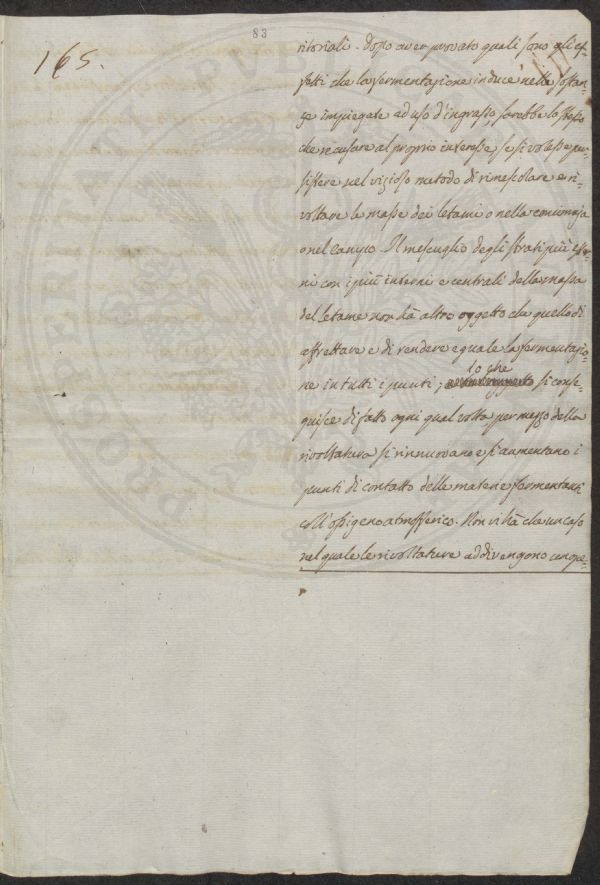 83
165.
ritoriali. Dopo aver provato quali sono gli ef-
fetti che la fermentazione induce nelle sostan-
ze impiegate ad uso d'ingrasso, sarebbe lo stesso
che recusare al proprio interesse, se si volesse per-
sistere nel vizioso metodo di rimescolare e ri-
voltare le masse dei letami o nella concimaja
o nel campo. Il mescuglio degli strati più ester-
ni con i più interni e centrali della massa
del letame non hà altro oggetto che quello di
affrettare e di rendere eguale la fermentazio-
lo che
ne in tutti i punti; si conse-
guisce di fatto ogni qual volta per mezzo della
rivoltatura si rinnuovano e si aumentano i
punti di contatto delle materie fermentanti
coll'ossigeno atmosferico. Non vi hà che un caso
nel quale le rivoltature addivengono
PROSPERITATI PUBLI